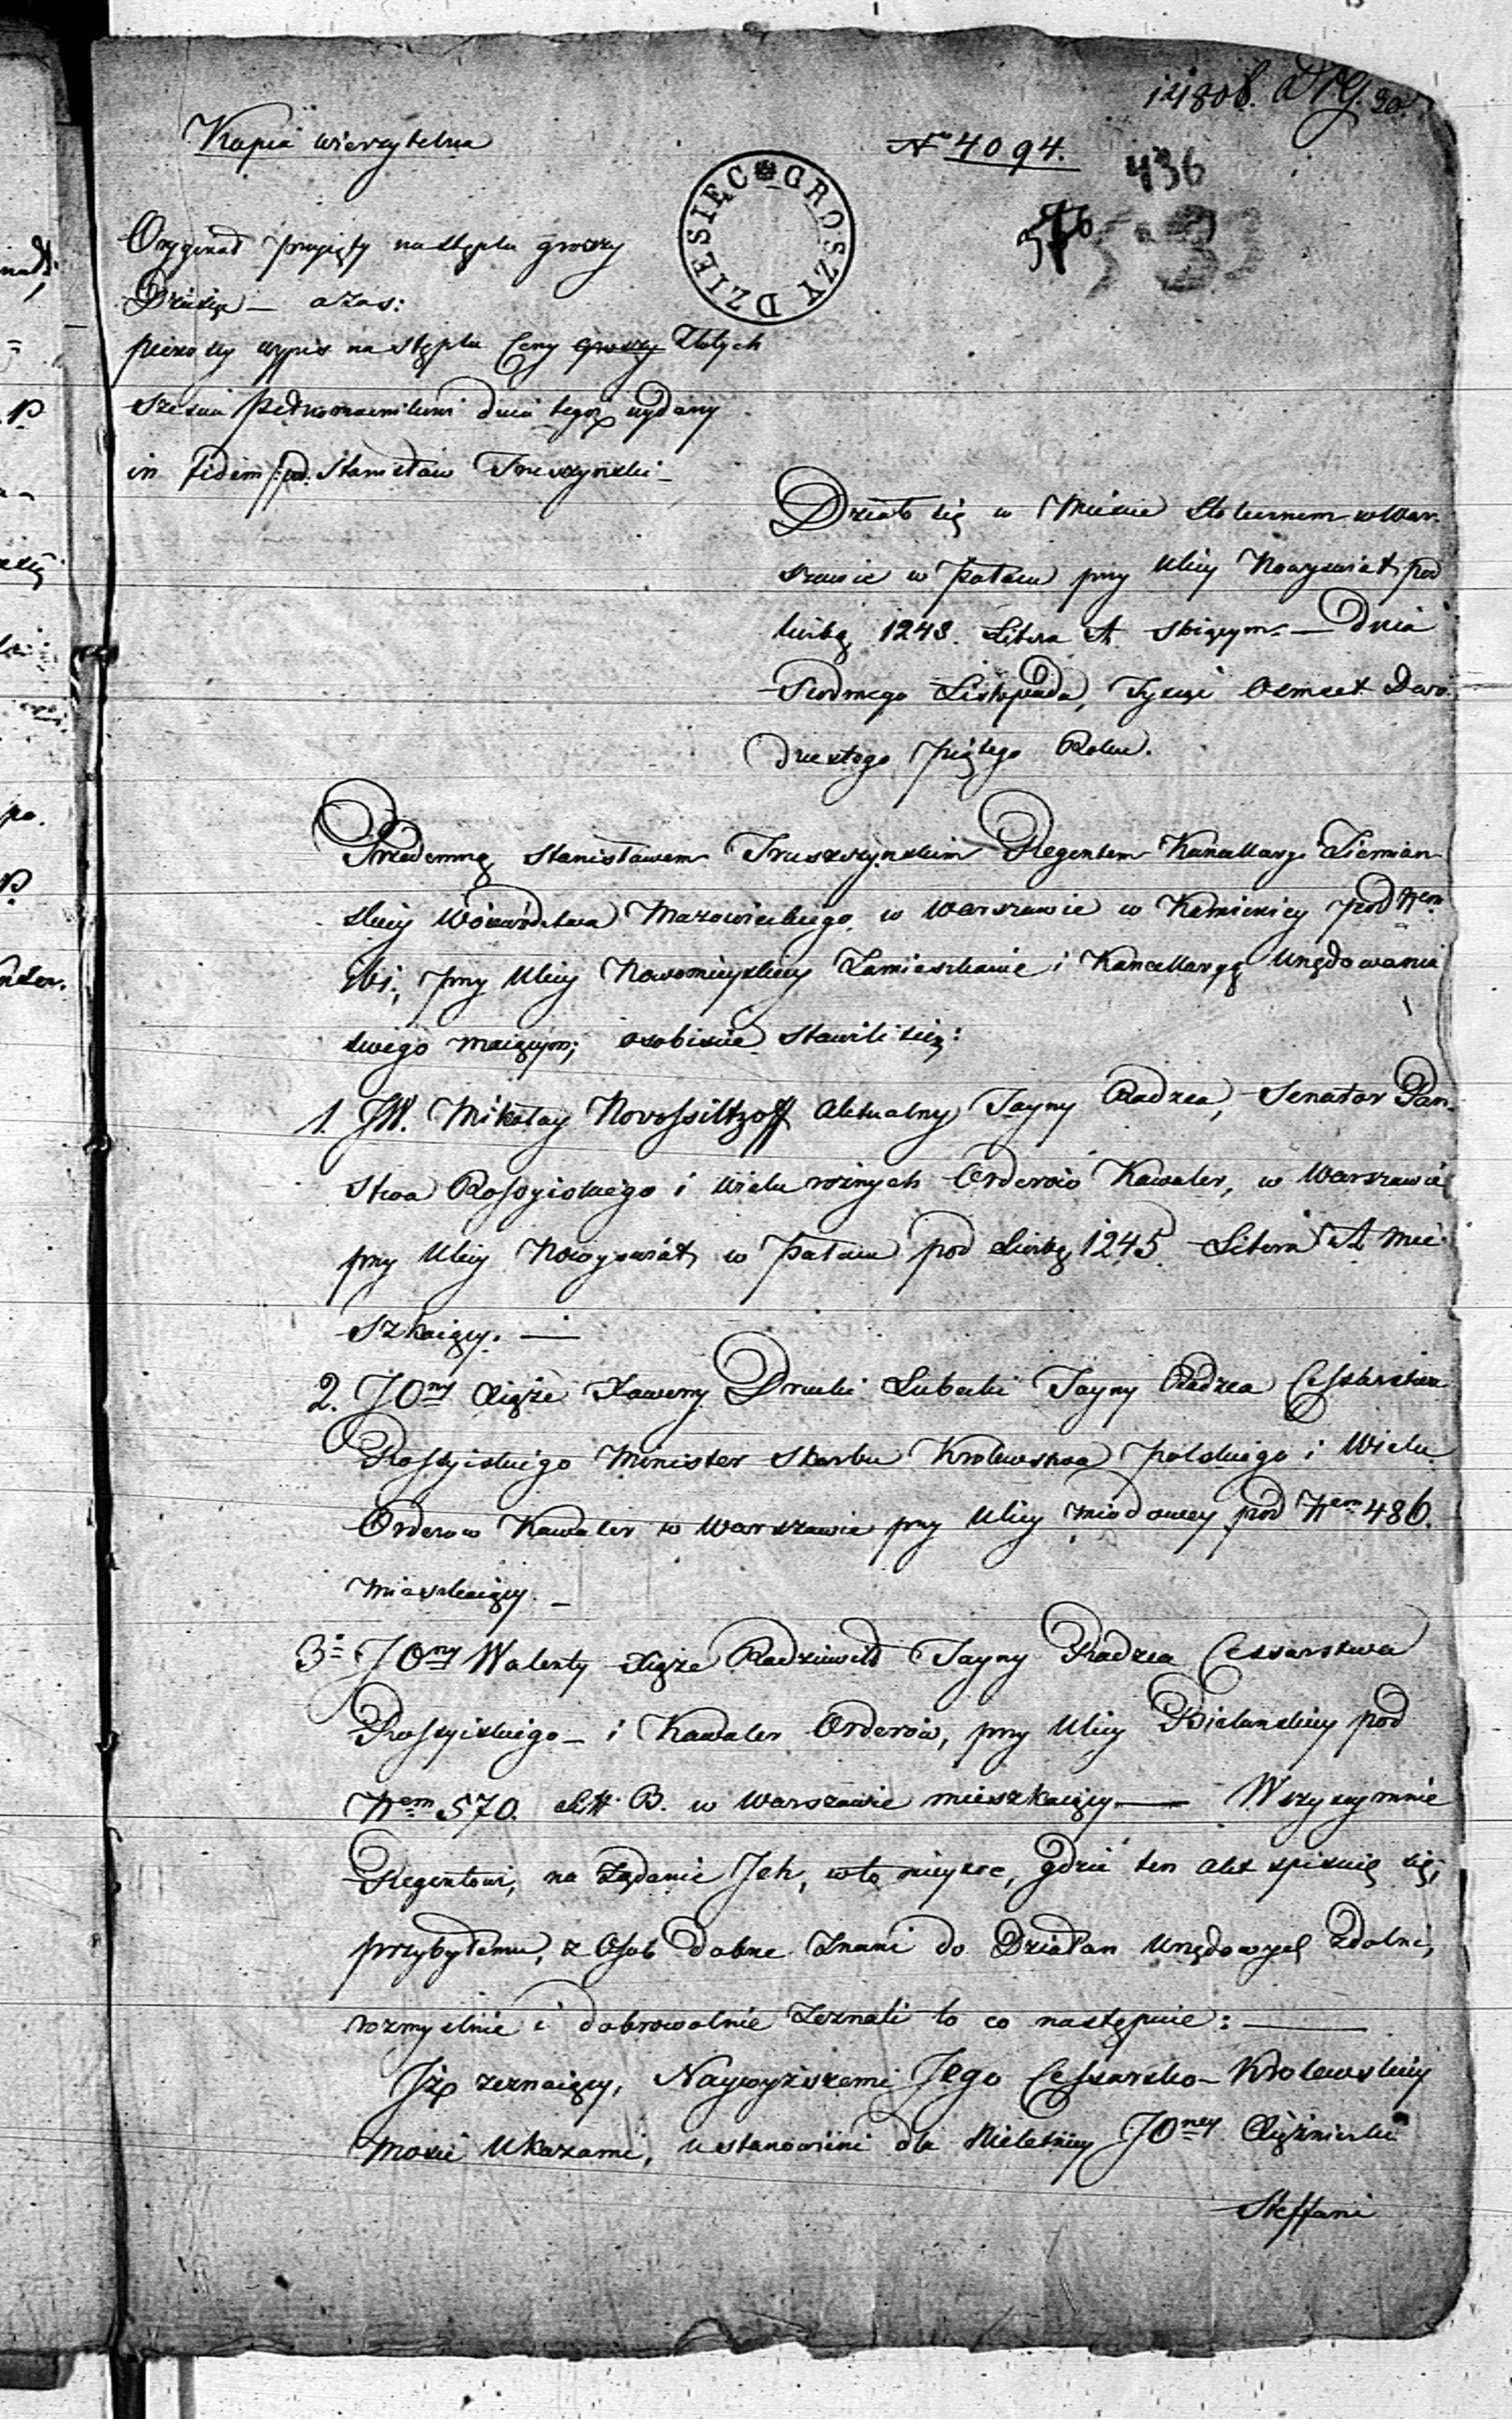 Kopia wierzytelna
No 4094.
436
GROSZY DZIESIĘC
Oryginał przyięty na stęplu groszy
Dziesięc — a zas:
pierwszy wypis na stęplu Ceny groszy Złotych
szesciu Pełnomocnikowi dnia tegoż wydany
in fidem /:pod. Stanisław Truszczynski —
Działo się w Miescie Stołecznem w War-
szawie w Pałacu przy Ulicy Nowyswiat pod
liczbą 1245. Litera A. stoiącym. — Dnia
Siodmego Listopada, Tysiąc Osmset Dwu-
dziestego piątego Roku.
Przedemną Stanisławem Truszczynskim Regentem Kancellaryi Ziemian-
skiey Woiewództwa Mazowieckiego w Warszawie w Kamienicy pod Nrem
przy Ulicy Nowomieyskiey Zamieszkanie i Kancellaryą Urzędowania
swego maiącym; osobiscie stawili się:
1. JW. Mikołay Novossiltzoff Aktualny Tayny Radzca, Senator Pan-
stwa Rossyiskiego i wielu roznych Orderów Kawaler, w Warszawie
przy Ulicy Nowyswiat w Pałacu pod Liczbą 1245 Litera A mie-
szkaiący. —
2. JOny Xiąże Xawery Drucki Lubecki Tayny Radzca Cesarstwa
Rossyiskiego Minister Skarbu Krolewstwa Polskiego i Wielu
Orderow Kawaler w Warszawie przy Ulicy Miodowey pod Nrem 486.
Mieszkaiący. —
3. JOny Walenty Xiąże Radziwiłł Tayny Radzca Cesarstwa
Rossyiskiego — i Kawaler Orderów, przy Ulicy Bielanskiey pod
Nrem 570. Litt. B. w Warszawie mieszkaiący — Wszyscy mnie
Regentowi, na żądanie Ich, w to mieysce, gdzie ten Akt spisuie się,
przybyłemu, z Osob dobrze znani do Działan Urzędowych zdolni,
rozmyslnie i dobrowolnie zeznali to co następuie: —
Iż zeznaiący, Naywyższemi Jego Cesarsko-Krolewskiey
Mosci Ukazami, ustanowieni dla Nieletniey JOney Xiężniczki
Steffanii